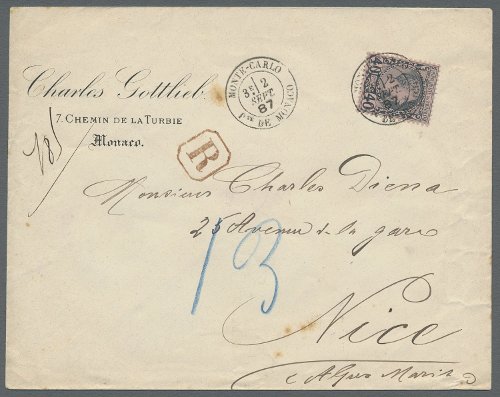 Charles Gottlieb
7, CHEMIN DE LA TURBIE
Monaco.
MONTE-CARLO
2
SEPT
87
Pté DE MONACO
R
Monsieur Charles Diena
25 Avenue de la gare
Nice
(Alpes Marit
13